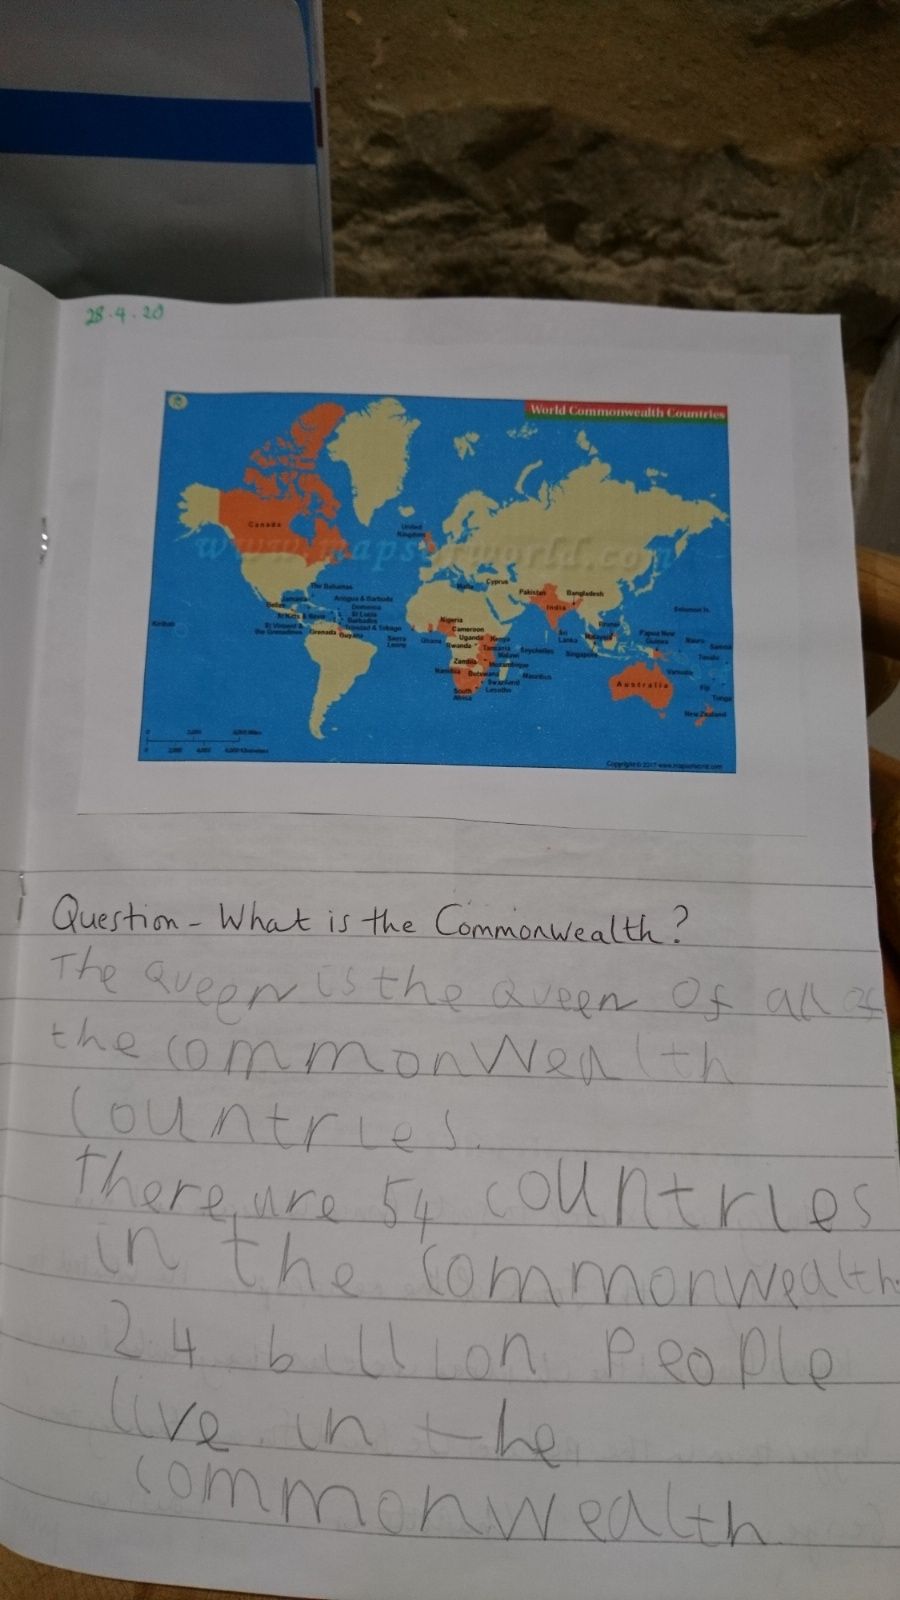 28.4.20
World Commonwealth Countries
Canada
United
Kingdom
www.mapsofworld.com
The Bahamas
Jamaica
Belize
Antigua & Barbuda
Dominica
St Lucia
Barbados
St Kitts & Nevis
Trinidad & Tobago
St Vincent &
the Grenadines
Grenada
Guyana
Kiribati
Malta
Cyprus
Pakistan
Bangladesh
India
Sierra
Leone
Ghana
Nigeria
Cameroon
Uganda
Kenya
Rwanda
Tanzania
Malawi
Seychelles
Zambia
Mozambique
Namibia
Botswana
Mauritius
Swaziland
South
Africa
Lesotho
Sri
Lanka
Brunei
Malaysia
Singapore
Papua New
Guinea
Solomon Is.
Nauru
Samoa
Tuvalu
Vanuatu
Fiji
Tonga
Australia
New Zealand
0 2,000 4,000 Miles
0 2,000 4,000 6,000 Kilometers
Copyright © 2017 www.mapsofworld.com
Question - What is the Commonwealth?
The Queen is the Queen of all of
the commonwealth
countries.
there are 54 countries
in the commonwealth.
2 4 billion people
live in the
commonwealth